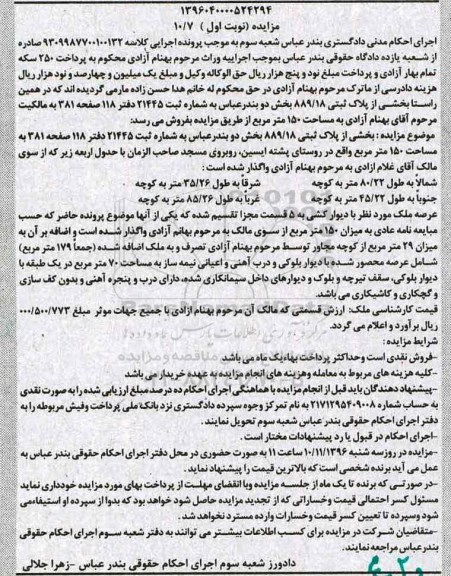 ۱۳۹۶۰۴۰۰۰۰۵۲۴۲۹۴
مزایده (نوبت اول ) ۱۰/۷
اجرای احکام مدنی دادگستری بندر عباس شعبه سوم به موجب پرونده اجرایی کلاسه ۹۳۰۹۹۸۷۷۰۰۱۰۰۱۳۲ صادره
از شعبه یازده دادگاه حقوقی بندر عباس بموجب اجراییه وراث مرحوم بهنام آزادی محکوم به پرداخت ۲۵۰ سکه
تمام بهار آزادی و پرداخت مبلغ نود و پنج هزار ریال حق الوکاله وکیل و مبلغ یک میلیون و چهارصد و نود هزار ریال
هزینه دادرسی از ماترک مرحوم بهنام آزادی در حق محکوم له خانم هدا حسن زاده مارمی گردیده اند که در همین
راستا بخشی از پلاک ثبتی ۸۸۹/۱۸ بخش دو بندرعباس به شماره ثبت ۲۱۴۴۵ دفتر ۱۱۸ صفحه ۳۸۱ به مالکیت
مرحوم آقای بهنام آزادی به مساحت ۱۵۰ متر مربع از طریق مزایده بفروش می رسد:
موضوع مزایده : بخشی از پلاک ثبتی ۸۸۹/۱۸ بخش دو بندرعباس به شماره ثبت ۲۱۴۴۵ دفتر ۱۱۸ صفحه ۳۸۱ به
مساحت ۱۵۰ متر مربع واقع در روستای پشته ایسین، روبروی مسجد صاحب الزمان با حدود اربعه زیر که از سوی
مالک آقای غلام ازادی به مرحوم بهنام آزادی واگذار شده است :
شمالاً به طول ۸۰/۲۲ متر به کوچه شرقاً به طول ۳۵/۲۶ متر به کوچه
جنوباً به طول ۴۵/۲۲ متر به کوچه غرباً به طول ۸۵/۲۶ متر به کوچه
عرصه ملک مورد نظر با دیوار کشی به ۵ قسمت مجزا تقسیم شده که یکی از آنها موضوع پرونده حاضر که حسب
مبایعه نامه عادی به میزان ۱۵۰ متر مربع از سوی مالک به مرحوم بهانم آزادی واگذار شده است و اضافه بر آن به
میزان ۲۹ متر مربع از کوچه مجاور توسط مرحوم بهنام آزادی تصرف و به ملک اضافه شده (جمعاً ۱۷۹ متر مربع)
شامل عرصه محصور شده با دیوار بلوکی و درب آهنی و اعیانی نیمه ساز به مساحت ۷۰ متر مربع در یک طبقه با
دیوار بلوکی، سقف تیرچه و بلوک و دیوارهای داخل سیمانکاری شده، دارای درب و پنجره آهنی و بدون کف سازی
و گچکاری و کاشیکاری می باشد.
قیمت کارشناسی ملک: ارزش قسمتی که مالک آن مرحوم بهنام ازادی با جمیع جهات موثر مبلغ ۰۰۰/۵۰۰/۷۷۳
ریال برآورد و اعلام می گردد.
شرایط مزایده :
-فروش نقدی است وحداکثر پرداخت بهاء یک ماه می باشد
-کلیه هزینه های مربوط به معامله وهزینه های انجام مزایده به عهده خریدار می باشد
-پیشنهاد دهندگان باید قبل از انجام مزایده با هماهنگی اجرای احکام ده درصد مبلغ ارزیابی شده را به صورت نقدی
به حساب شماره ۲۱۷۱۲۹۵۴۰۹۰۰۸ به نام تمرکز وجوه سپرده دادگستری نزد بانک ملی پرداخت وفیش مربوطه را به
دفتر اجرای احکام حقوقی بندر عباس شعبه سوم تحویل نمایند.
-اجرای احکام در قبول یا رد پیشنهادات مختار است .
-مزایده در روز سه شنبه ۱۰/۱۱/۱۳۹۶ ساعت ۱۱ به صورت حضوری در محل دفتر اجرای احکام حقوقی بندر عباس به
عمل می آید برنده شخصی است که بالاترین قیمت را پیشنهاد نماید .
-در صورتی که برنده تا یک ماه از جلسه مزایده ویا انقضای مهلت از پرداخت بهای مورد مزایده خودداری نماید
مسئول کسر احتمالی قیمت وخساراتی که از تجدید مزایده حاصل شود خواهد بود که بدوا از سپرده او استیفا می
شود وسپرده تا تعیین کسر قیمت وخسارات وارده مسترد نخواهد شد .
-متقاضیان شرکت در مزایده برای کسب اطلاعات بیشتر می توانند به دفتر شعبه سوم اجرای احکام حقوقی
بندرعباس مراجعه نمایند.
دادورز شعبه سوم اجرای احکام حقوقی بندر عباس -زهرا جلالی